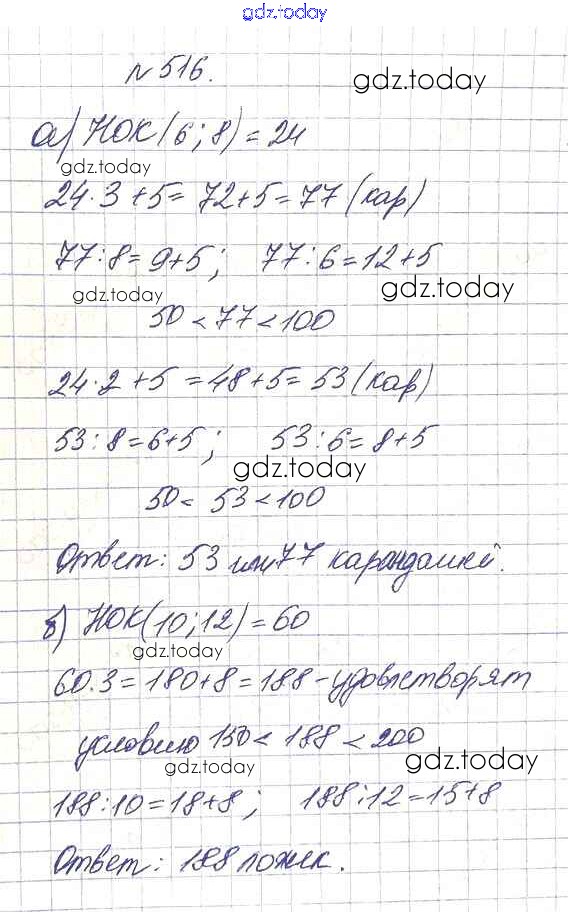 gdz.today
№ 516.
gdz.today
а) НОК(6;8) = 24
gdz.today
24·3+5= 72+5=77 (кар)
77:8=9+5; 77:6=12+5
gdz.today gdz.today
50<77<100
24·2+5 =48+5=53(кар)
53:8=6+5; 53:6=8+5
gdz.today
50< 53<100
Ответ: 53 или 77 карандашей.
б) НОК(10;12)=60
gdz.today
60·3=180+8=188-удовлетворят
условию 150< 188 <200
gdz.today gdz.today
188:10=18+8; 188:12=15+8
Ответ: 188 ложек.